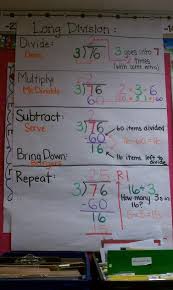 Long Division:
Divide:
Dean
3)176
3 goes into 7
2 times
(with some extra)
Multiply:
McDonalds
2
3)176
60
2·3=6
Subtract:
Serve
3)176
-60
16
60 items divided
76-60=16
16 items left to
divide
Bring Down:
Burgers
Repeat:
25 R1
3)76
-60
16
15
1
16÷3
How many 3s in
16?
5×3=15